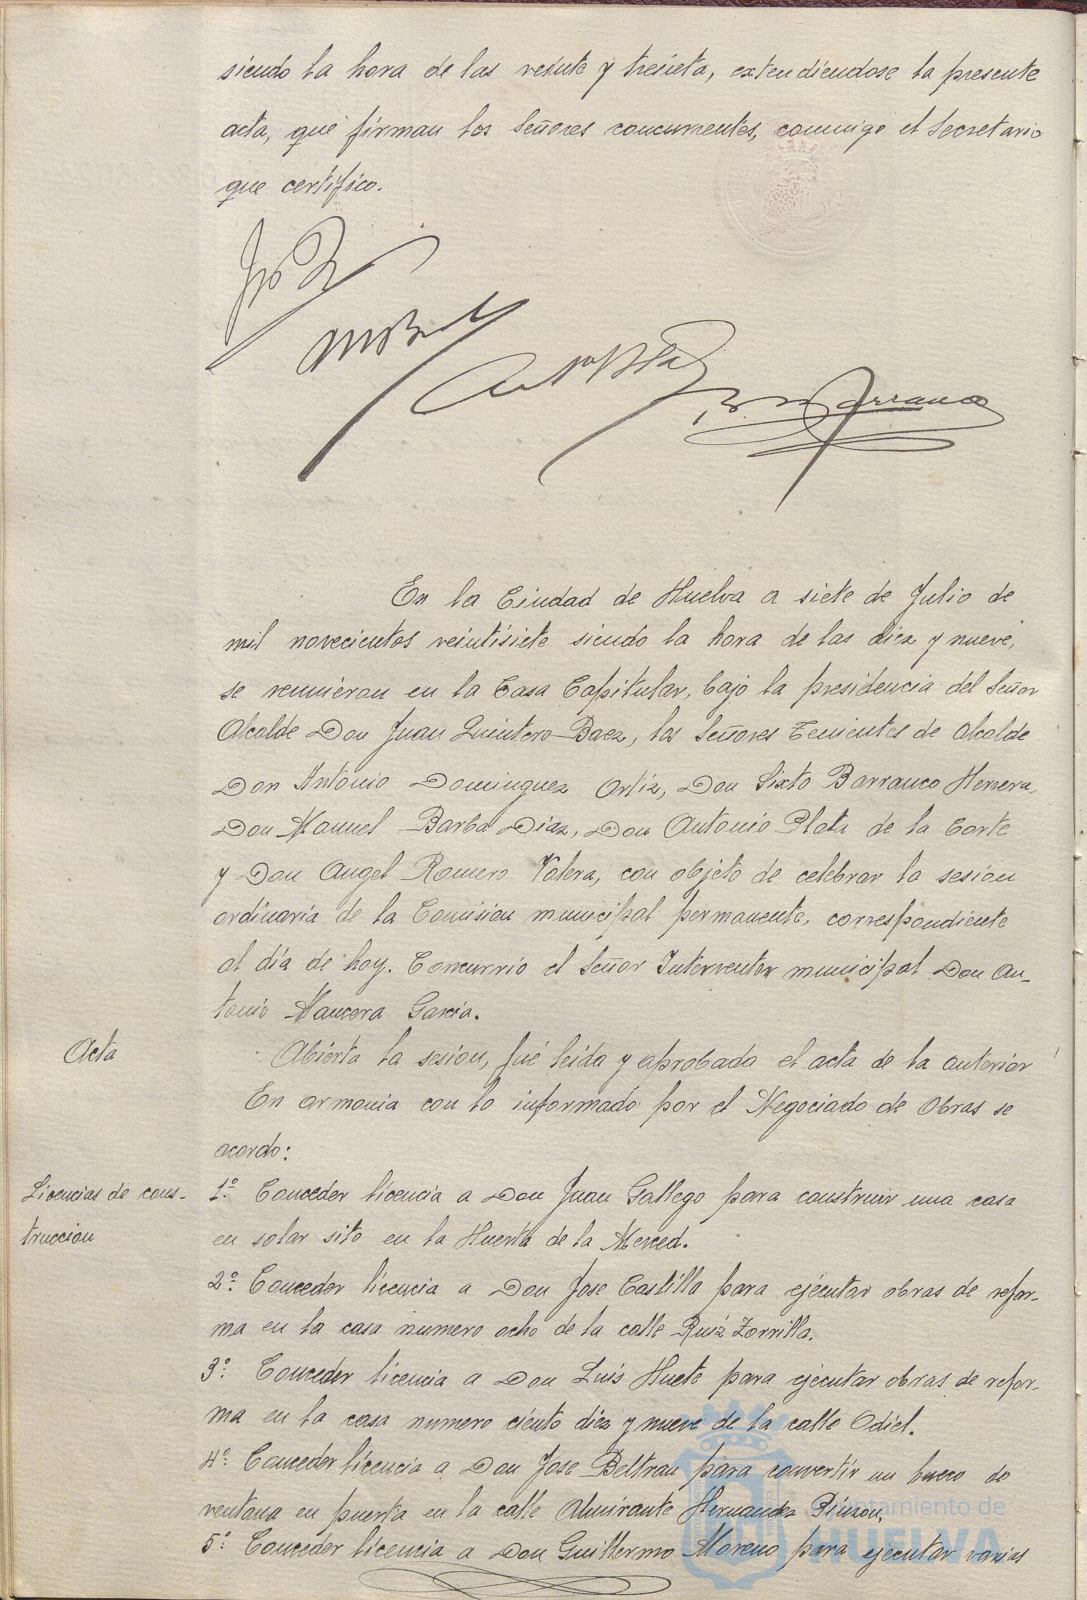 siendo la hora de las veinte y treinta, extendiendose la presente
acta, que firman los Señores concurrentes, conmigo el Secretario
que certifico.
En la Ciudad de Huelva a siete de Julio de
mil novecientos veintisiete siendo la hora de las diez y nueve,
se reunieron en la Casa Capitular, bajo la presidencia del Señor
Alcalde Don Juan Quintero Baez, los Señores Tenientes de Alcalde
Don Antonio Dominguez Ortiz, Don Sixto Barranco Herrera,
Don Manuel Barba Diaz, Don Antonio Plata de la Corte
y Don Angel Romero Valera, con objeto de celebrar la sesion
ordinaria de la Comision municipal permanente, correspondiente
al día de hoy. Concurrio el Señor Interventor municipal Don An-
tonio Mancera Garcia.
Acta
Abierta la sesion, fué leida y aprobada el acta de la anterior
En armonia con lo informado por el Negociado de Obras se
acordo:
Licencias de cons-
truccion
1º Conceder licencia a Don Juan Gallego para construir una casa
en solar sito en la Huerta de la Merced.
2º Conceder licencia a Don Jose Castilla para ejecutar obras de refor-
ma en la casa numero ocho de la calle Ruiz Zorrilla.
3º Conceder licencia a Don Luis Huete para ejecutar obras de refor-
ma en la casa numero ciento diez y nueve de la calle Odiel.
4º Conceder licencia a Don Jose Beltran para convertir un hueco de
ventana en puerta en la calle Almirante Hernandez Pinzon,
5º Conceder licencia a Don Guillermo Moreno para ejecutar varias
Ayuntamiento de
HUELVA